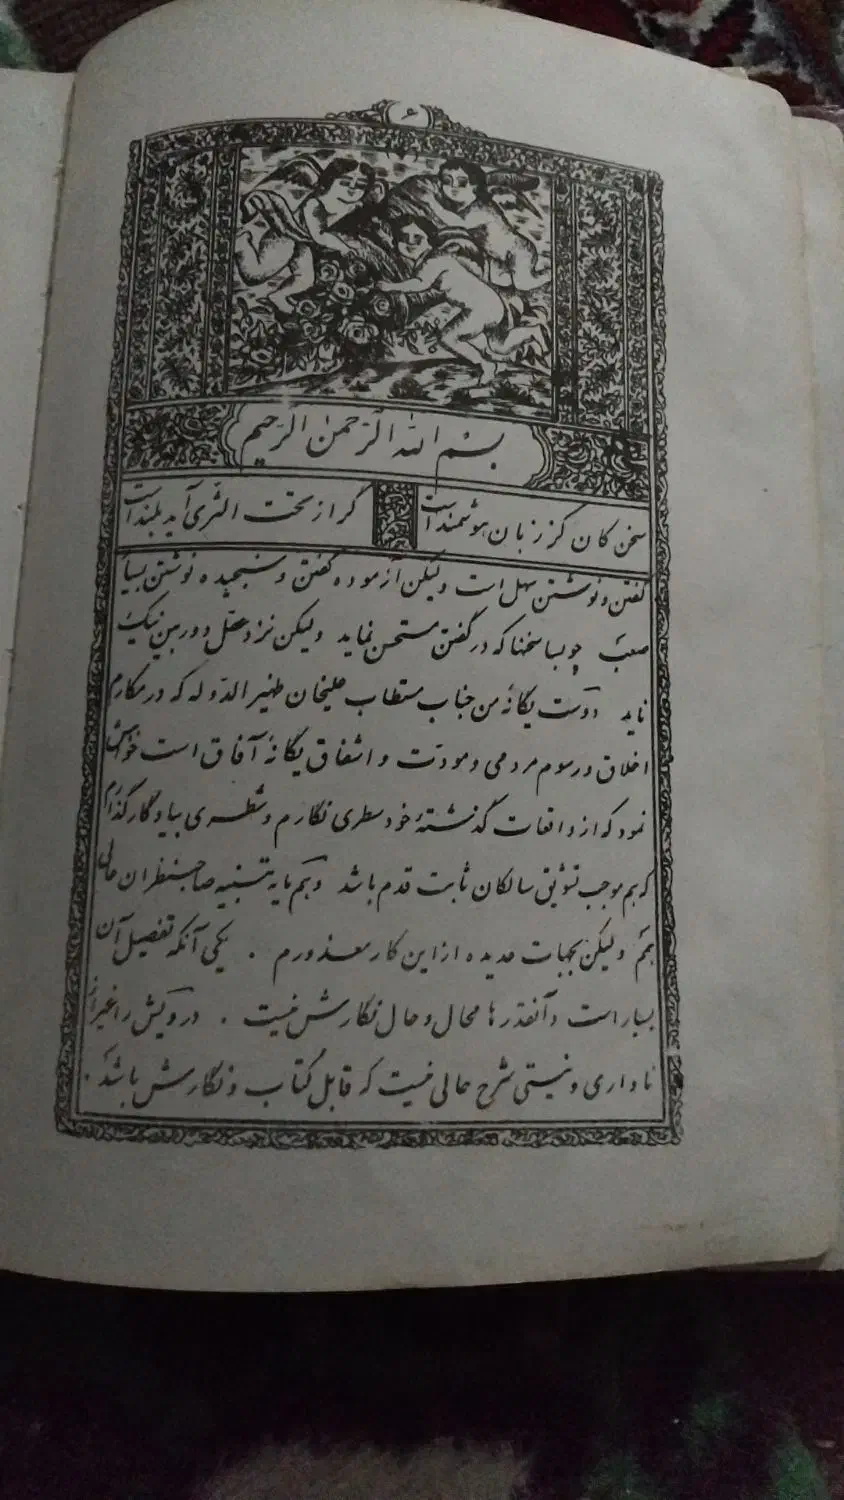 ۶
بسم الله الرحمن الرحیم
سخن کان کز زبان هوشمند است گر از تحت الثری آید بلند است
گفتن و نوشتن سهل است ولیکن آزموده گفتن و سنجیده نوشتن بسیا
صعب چه بسا سخنها که در گفتن مستحسن نماید ولیکن نزد عقل دوربین نیک
ناید دوست یگانهٔ من جناب مستطاب علیخان ظهیر الدوله که در مکارم
اخلاق و رسوم مردمی و مودت و اشفاق یگانهٔ آفاق است خواهش
نمود که از واقعات گذشتهٔ خود سطری نگارم و شطری بیادگار گذارم
که هم موجب تشویق سالکان ثابت قدم باشد و هم مایه تنبیه صاحبنظران عالی
همم ولیکن بجهات عدیده از این کار معذورم . یکی آنکه تفصیل آن
بسیار است و آنقدرها مجال و حال نگارش نیست . درویش را غیر از
ناداری و نیستی شرح حالی نیست که قابل کتاب و نگارش باشد .